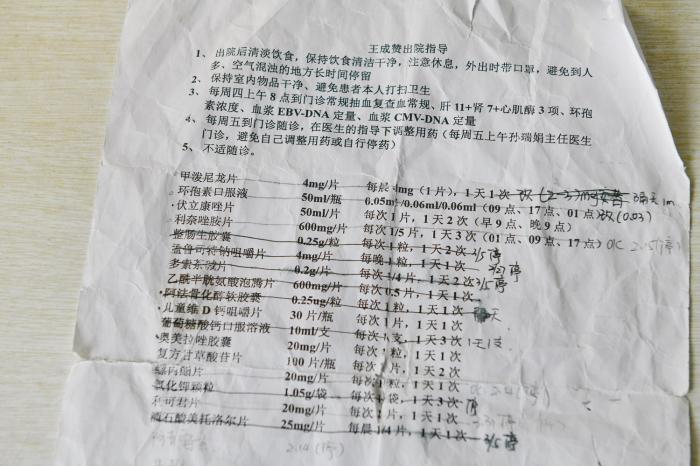 王成赞出院指导
1、出院后清淡饮食，保持饮食清洁干净，注意休息，外出时带口罩，避免到人
多、空气混浊的地方长时间停留
2、保持室内物品干净、避免患者本人打扫卫生
3、每周四上午8点到门诊常规抽血复查血常规、肝11+肾7+心肌酶3项、环孢
素浓度、血浆EBV-DNA定量、血浆CMV-DNA定量
4、每周五到门诊随诊，在医生的指导下调整用药（每周五上午孙瑞娟主任医生
门诊，避免自己调整用药或自行停药）
5、不适随诊。
甲泼尼龙片 4mg/片 每晨4mg（1片），1天1次
环孢素口服液 50ml/瓶 0.05ml/0.06ml/0.06ml（09点、17点、01点）改(0.03)
·伏立康唑片 50ml/片 每次1片，1天2次（早9点、晚9点）
利奈唑胺片 600mg/片 每次1/5片，1天3次（01点、09点、17点）
整肠生胶囊 0.25g/粒 每次1粒，1天2次 3/5停
孟鲁司特钠咀嚼片 4mg/片 每晚1粒，1天1次 停
多索茶碱片 0.2g/片 每次1/4片，1天2次 3/5停
乙酰半胱氨酸泡腾片 600mg/片 每次0.5片，1天1次
·阿法骨化醇软胶囊 0.25ug/粒 每次1粒，1天1次
·儿童维D钙咀嚼片 30片/瓶 每次1片，1天1次
葡萄糖酸钙口服溶液 10ml/支 每次1支，1天3次 1天1支
·奥美拉唑胶囊 20mg/片 每次1粒，1天1次
复方甘草酸苷片 100片/瓶 每次1片，1天2次
20mg/片 每次1粒，1天1次
氯化钾颗粒 1.05g/袋 每次1袋，1天3次 停
利可君片 20mg/片 每次1片，1天1次
酒石酸美托洛尔片 25mg/片 每晨1/4片，1天1次 3/5停
2.14（停）